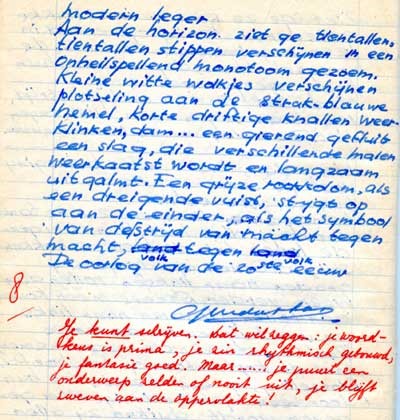 modern leger
Aan de horizon ziet ge tientallen,
tientallen stippen verschijnen in een
onheilspellend monotoom gezoem.
Kleine witte wolkjes verschijnen
plotseling aan de strak-blauwe
hemel, korte driftige knallen weer-
klinken, dan... een gierend gefluit
een slag, die verschillende malen
weerkaatst wordt en langzaam
uitgalmt. Een grijze rookkolom, als
een dreigende vuist, stygt op
aan de einder, als het symbool
van de strijd van macht tegen
macht, land tegen land
volk volk
De oorlog van de 20ste eeuw
8
Je kunt schrijven. Dat wil zeggen: je woord-
keus is prima, je zin rhythmisch gebouwd,
je fantasie goed. Maar..... je puurt een
onderwerp zelden of nooit uit, je blijft
zweven aan de oppervlakte!